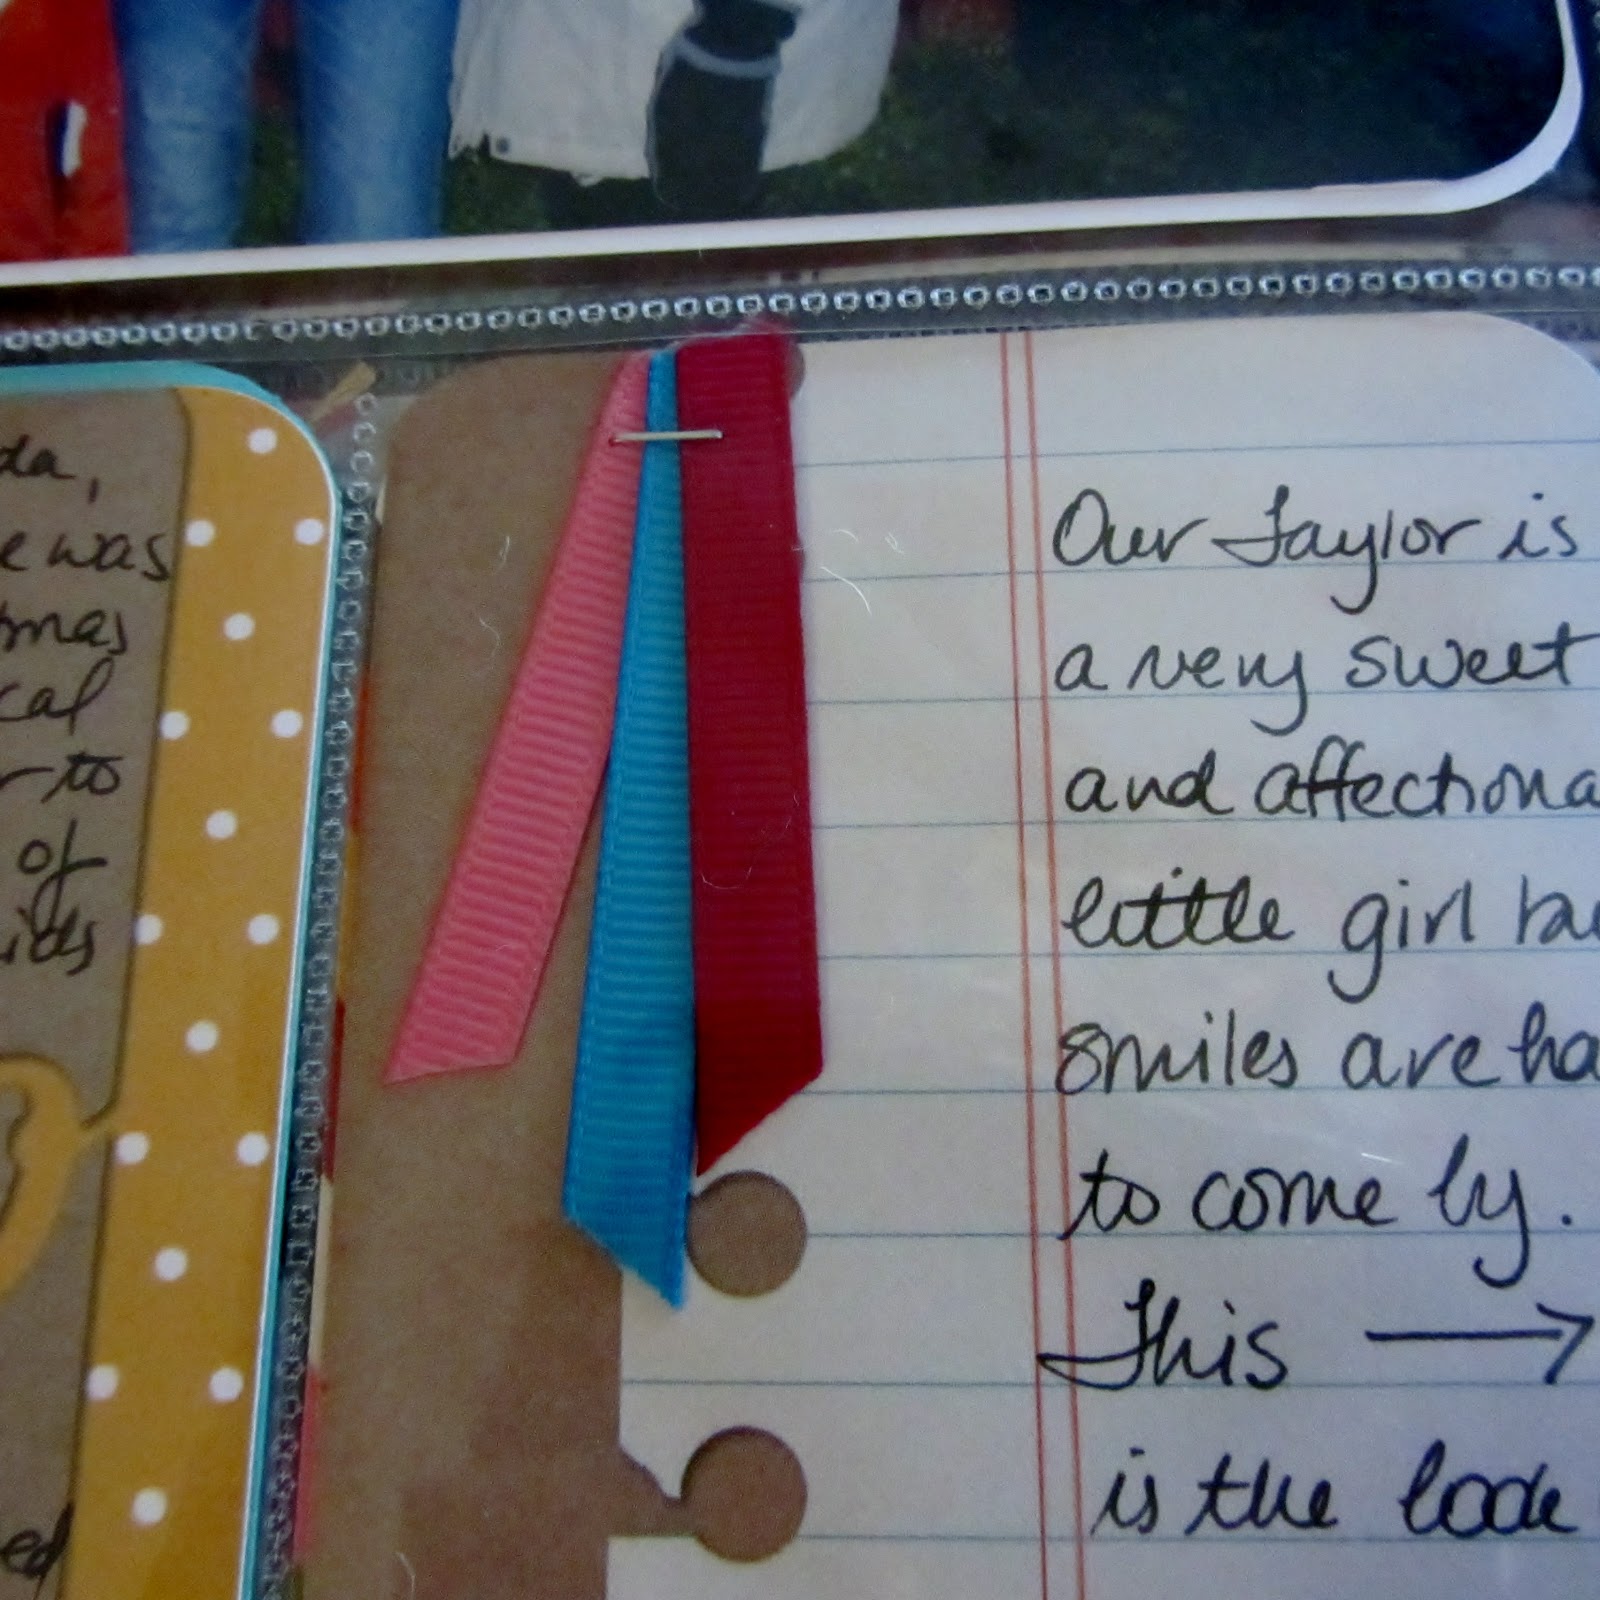 da,
e was
tmas
cal
r to
of
ids
ed
Our Taylor is
a very sweet
and affectiona
little girl bu
smiles are ha
to come by.
This →
is the look